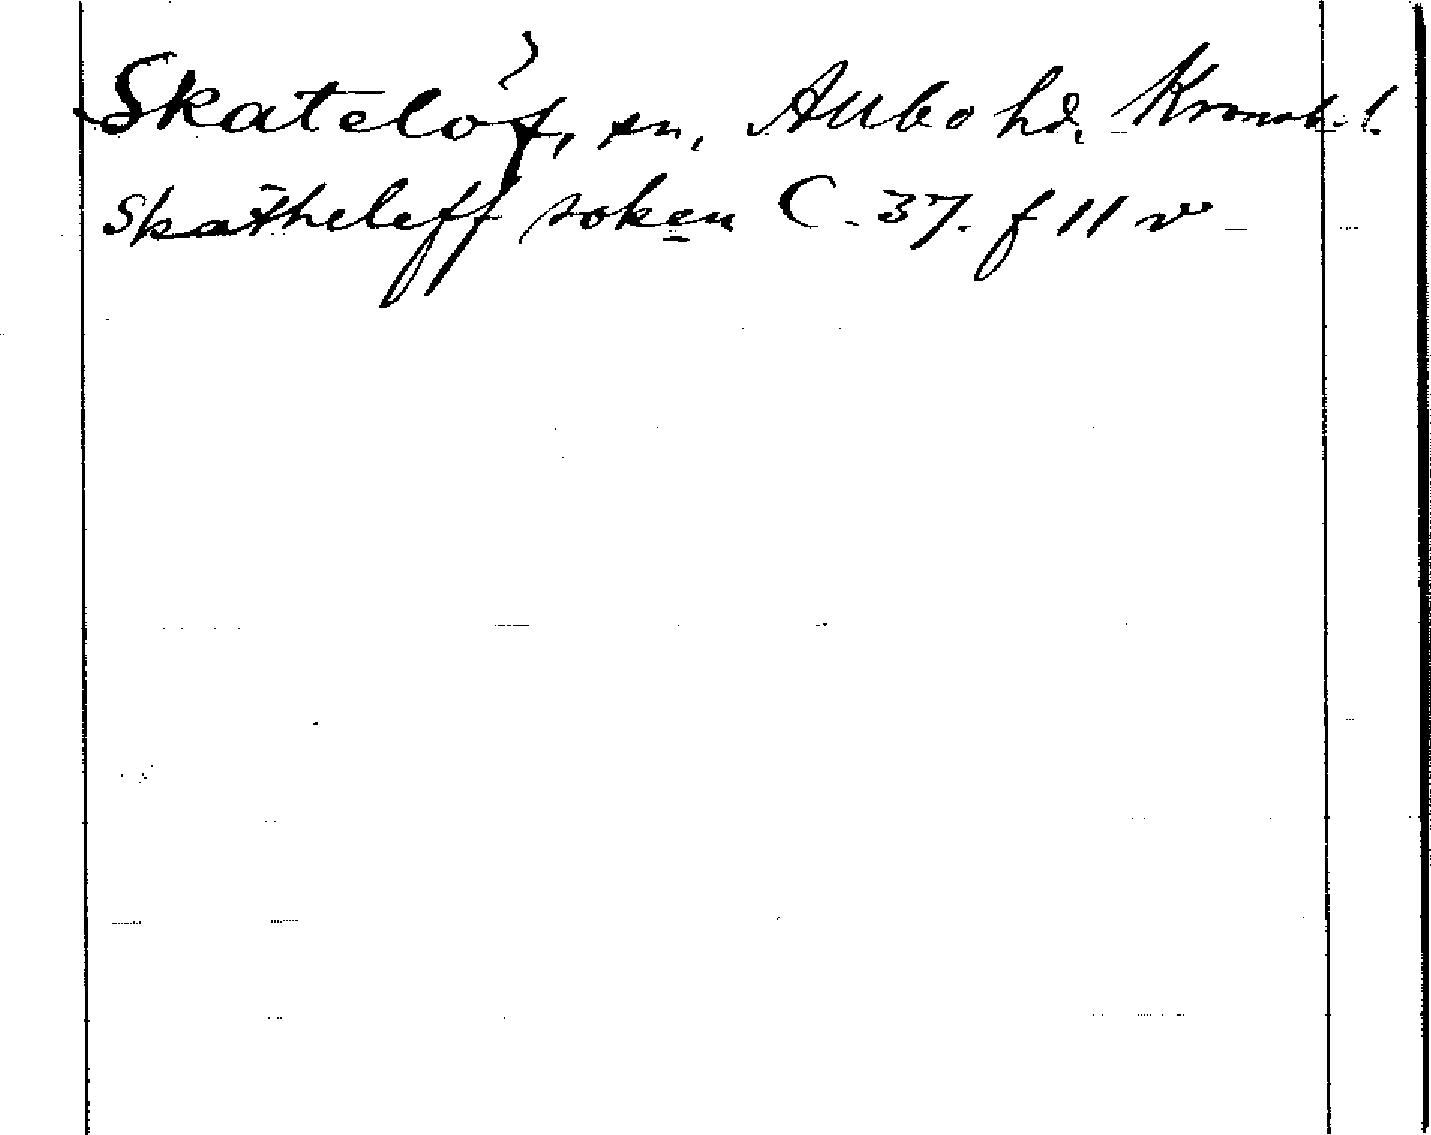 Skatelöf, sn, Allbo hd. Kronob. l.
Skatheleff soken C. 37. f 11 v